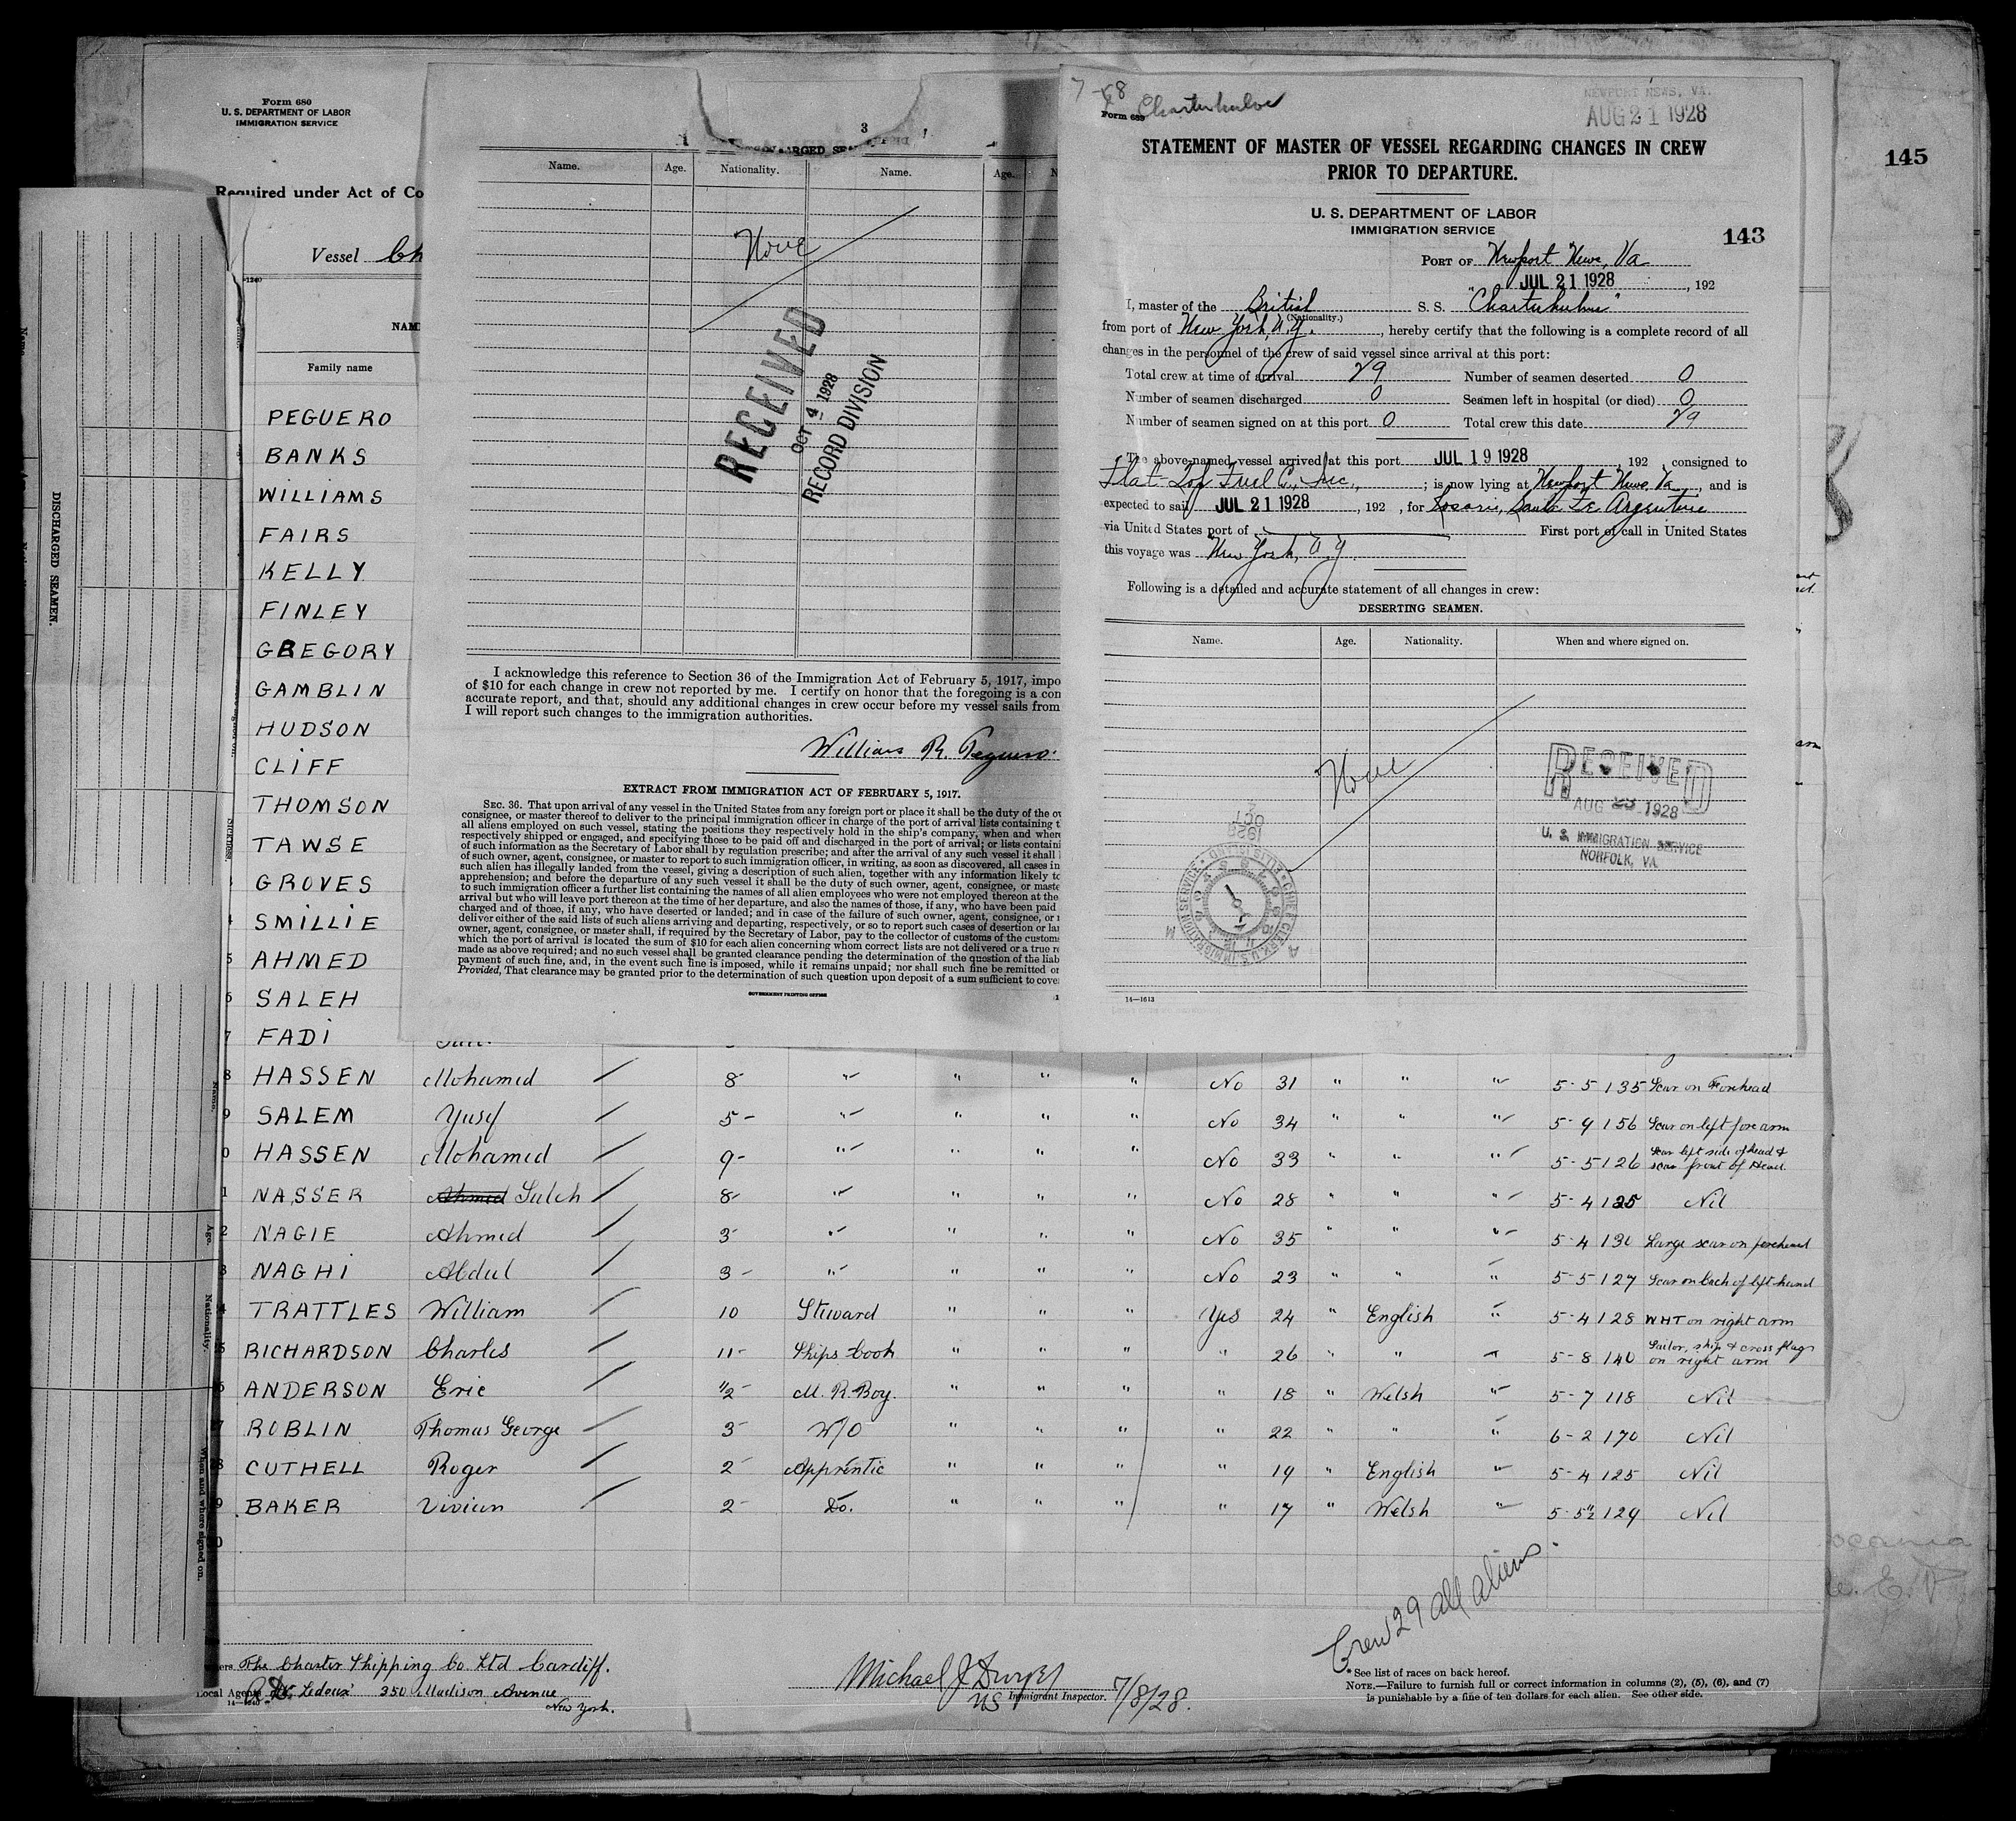 Form 680
U. S. DEPARTMENT OF LABOR
IMMIGRATION SERVICE
Required under Act of Co
Vessel Ch
NAM
Family name
PEGUERO
BANKS
WILLIAMS
FAIRS
KELLY
FINLEY
GREGORY
GAMBLIN
HUDSON
CLIFF
THOMSON
TAWSE
GROVES
SMILLIE
AHMED
SALEH
FADI
DISCHARGED SEAMEN.
3
Name. Age. Nationality. Name. Age. N
None
RECEIVED
OCT 4 1928
RECORD DIVISION
I acknowledge this reference to Section 36 of the Immigration Act of February 5, 1917, impo
of $10 for each change in crew not reported by me. I certify on honor that the foregoing is a con
accurate report, and that, should any additional changes in crew occur before my vessel sails from
I will report such changes to the immigration authorities.
William R. Peguero
EXTRACT FROM IMMIGRATION ACT OF FEBRUARY 5, 1917.
SEC. 36. That upon arrival of any vessel in the United States from any foreign port or place it shall be the duty of the ow
consignee, or master thereof to deliver to the principal immigration officer in charge of the port of arrival lists containing t
all aliens employed on such vessel, stating the positions they respectively hold in the ship's company, when and where
respectively shipped or engaged, and specifying those to be paid off and discharged in the port of arrival; or lists containi
of such information as the Secretary of Labor shall by regulation prescribe; and after the arrival of any such vessel it shall
of such owner, agent, consignee, or master to report to such immigration officer, in writing, as soon as discovered, all cases in
such alien has illegally landed from the vessel, giving a description of such alien, together with any information likely to
apprehension; and before the departure of any such vessel it shall be the duty of such owner, agent, consignee, or maste
to such immigration officer a further list containing the names of all alien employees who were not employed thereon at the
arrival but who will leave port thereon at the time of her departure, and also the names of those, if any, who have been paid
charged and of those, if any, who have deserted or landed; and in case of the failure of such owner, agent, consignee, or
deliver either of the said lists of such aliens arriving and departing, respectively, or so to report such cases of desertion or lan
owner, agent, consignee, or master shall, if required by the Secretary of Labor, pay to the collector of customs of the customs
which the port of arrival is located the sum of $10 for each alien concerning whom correct lists are not delivered or a true re
made as above required; and no such vessel shall be granted clearance pending the determination of the question of the liab
payment of such fine, and, in the event such fine is imposed, while it remains unpaid; nor shall such fine be remitted or
Provided, That clearance may be granted prior to the determination of such question upon deposit of a sum sufficient to cove
GOVERNMENT PRINTING OFFICE
Form 689
NEWPORT NEWS, VA.
AUG 21 1928
STATEMENT OF MASTER OF VESSEL REGARDING CHANGES IN CREW
PRIOR TO DEPARTURE.
U. S. DEPARTMENT OF LABOR
IMMIGRATION SERVICE
143
145
PORT OF Newport News, Va
JUL 21 1928, 192
I, master of the British S. S. "Charterhulme"
(Nationality.)
from port of New York, N.Y., hereby certify that the following is a complete record of all
changes in the personnel of the crew of said vessel since arrival at this port:
Total crew at time of arrival 29 Number of seamen deserted 0
Number of seamen discharged 0 Seamen left in hospital (or died) 0
Number of seamen signed on at this port 0 Total crew this date 29
The above-named vessel arrived at this port JUL 19 1928, 192 consigned to
Flat Top Fuel Co., Inc., ; is now lying at Newport News, Va, and is
expected to sail JUL 21 1928, 192 , for Rosario, Santa Fe Argentine
via United States port of First port of call in United States
this voyage was New York, N.Y.
Following is a detailed and accurate statement of all changes in crew:
DESERTING SEAMEN.
Name. Age. Nationality. When and where signed on.
None
RECEIVED
AUG 23 1928
U. S. IMMIGRATION SERVICE
NORFOLK, VA
14—1613
8 HASSEN Mohamed 8 " " " " No 31 " " " 5-5 135 Scar on Forehead
9 SALEM Yusef 5 " " " " No 34 " " " 5-9 156 Scar on left fore arm
0 HASSEN Mohamed 9 " " " " No 33 " " " 5-5 126 Scar left side of head & scar front of Head
1 NASSER Ahmed Saleh 8 " " " " No 28 " " " 5-4 125 Nil
2 NAGIE Ahmed 3 " " " " No 35 " " " 5-4 130 Large scar on forehead
3 NAGHI Abdul 3 " " " " No 23 " " " 5-5 127 Scar on back of left hand
4 TRATTLES William 10 Steward " " " Yes 24 " English " 5-4 128 WHT on right arm
5 RICHARDSON Charles 11 Ships Cook " " " " 26 " " " 5-8 140 Sailor, ship & cross flags on right arm
6 ANDERSON Eric 1/2 M. R. Boy. " " " " 18 " Welsh " 5-7 118 Nil
7 ROBLIN Thomas George 3 W/O " " " " 22 " " " 6-2 170 Nil
8 CUTHELL Roger 2 Apprentic " " " " 19 " English " 5-4 125 Nil
9 BAKER Vivian 2 Do. " " " " 17 " Welsh " 5-5½ 129 Nil
Crew 29 all aliens.
The Charter Shipping Co Ltd Cardiff.
Local Agents Ledoux 350 Madison Avenue
New York.
14—1240
US Immigrant Inspector. 7/8/28.
*See list of races on back hereof.
NOTE.—Failure to furnish full or correct information in columns (2), (5), (6), and (7)
is punishable by a fine of ten dollars for each alien. See other side.